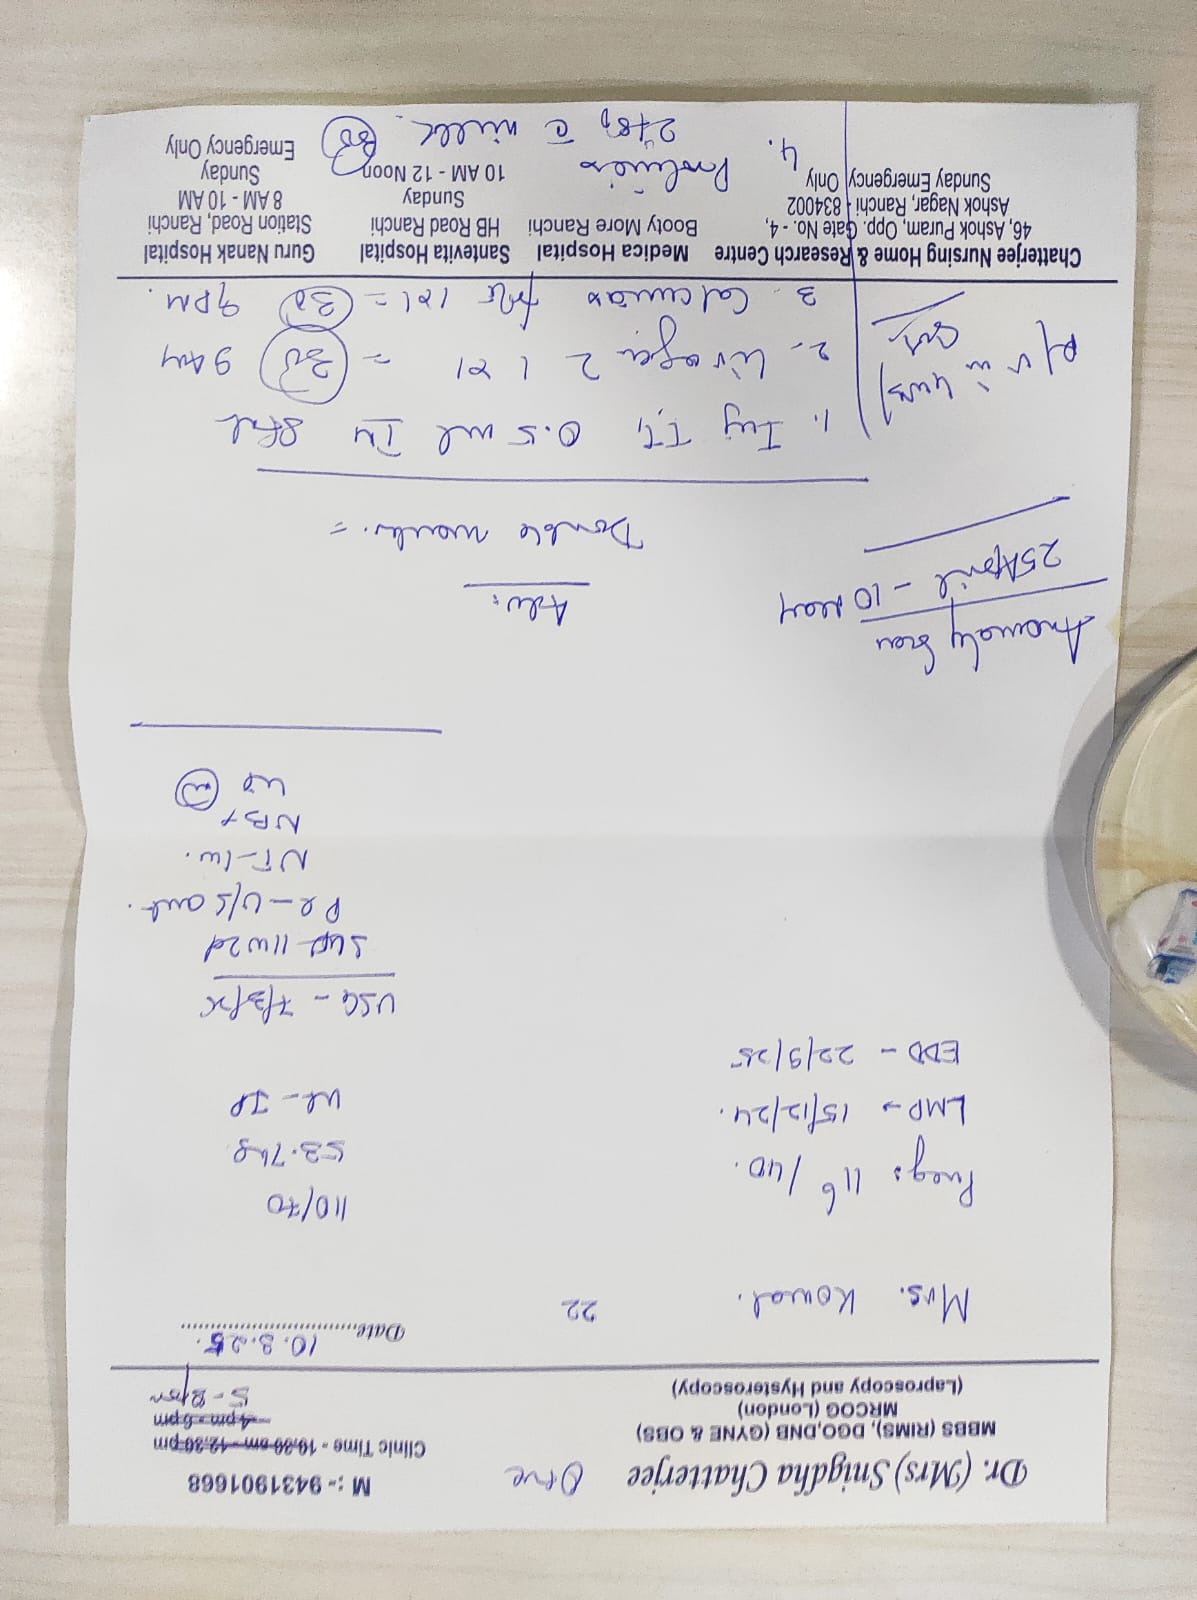 Dr. (Mrs) Snigdha Chatterjee
MBBS (RIMS), DGO,DNB (GYNE & OBS)
MRCOG (London)
(Laproscopy and Hysteroscopy)
M :- 9431901668
Clinic Time - 10.30 am - 12.30 pm
4 pm - 6 pm
5 - 8 pm
Mrs. Komal. 22
Date 10.3.25.
Preg: 11 6/40.
LMP - 15/12/24.
EDD - 22/9/25
110/70
53.7kg
Ut - JP
USG - 7/3/25
SLF 11w2d
Pl - U/S ant.
NT-1.
NB+
Anomaly Scan
25 April - 10 May
Adv:
Double marker.
1. Inj TT, 0.5 ml IM stat
2. Livogen Z 1 x 1 = 30 9 AM
3. Calcimax 1x1 = 30 9 PM.
R/v in 4 wks
Chatterjee Nursing Home & Research Centre
46, Ashok Puram, Opp. Gate No. - 4,
Ashok Nagar, Ranchi - 834002
Sunday Emergency Only
Medica Hospital
Booty More Ranchi
Santevita Hospital
HB Road Ranchi
Sunday
10 AM - 12 Noon
Guru Nanak Hospital
Station Road, Ranchi
8 AM - 10 AM
Sunday
Emergency Only
4.
2 tsp c milk. BD